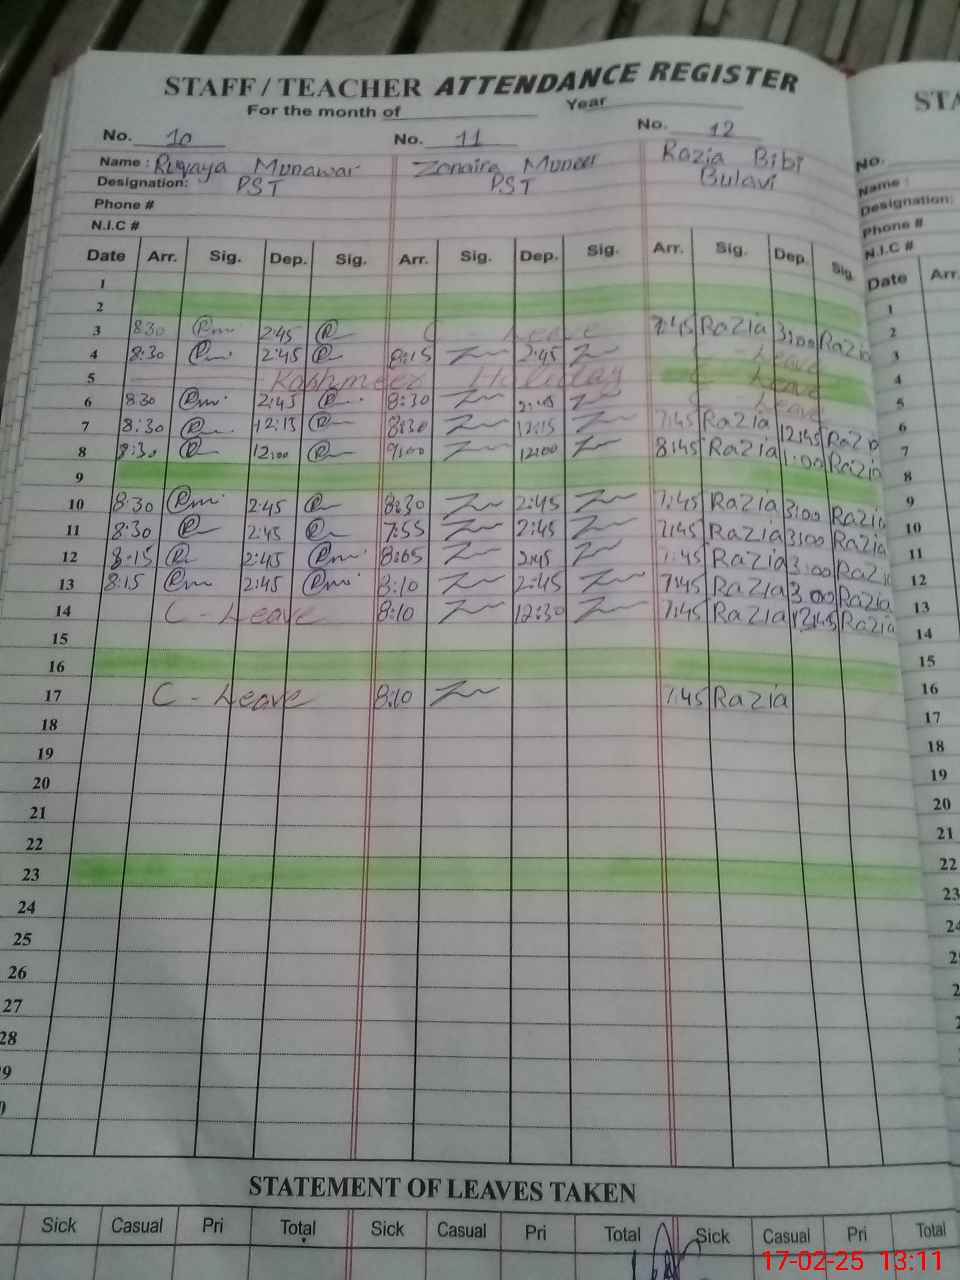 STAFF / TEACHER ATTENDANCE REGISTER
For the month of Year
No. 10 No. 11 No. 12
Name : Ruqaya Munawar Zonaira Muneer Razia Bibi
Designation: PST PST Bulavi
Phone #
N.I.C #
Date Arr. Sig. Dep. Sig. Arr. Sig. Dep. Sig. Arr. Sig. Dep. Sig.
1
2
3 8:30 2:45 C - Leave 7:45 Razia 3:00 Razia
4 8:30 2:45 8:15 2:45 C - Leave
5 Kashmeer Holiday C - Leave
6 8:30 2:45 8:30 2:45 C - Leave
7 8:30 12:15 8:30 12:15 7:45 Razia 12:45 Razia
8 8:30 12:00 9:00 12:00 8:45 Razia 1:00 Razia
9
10 8:30 2:45 8:30 2:45 7:45 Razia 3:00 Razia
11 8:30 2:45 7:55 2:45 7:45 Razia 3:00 Razia
12 8:15 2:45 8:05 2:45 7:45 Razia 3:00 Razia
13 8:15 2:45 8:10 2:45 7:45 Razia 3:00 Razia
14 C - Leave 8:10 12:30 7:45 Razia 12:45 Razia
15
16
17 C - Leave 8:10 7:45 Razia
18
19
20
21
22
23
24
25
26
27
28
9
0
STATEMENT OF LEAVES TAKEN
Sick Casual Pri Total Sick Casual Pri Total Sick Casual Pri Total
STA
No.
Name :
Designation:
Phone #
N.I.C #
Date Arr.
1
2
3
4
5
6
7
8
9
10
11
12
13
14
15
16
17
18
19
20
21
22
23
24
17-02-25 13:11